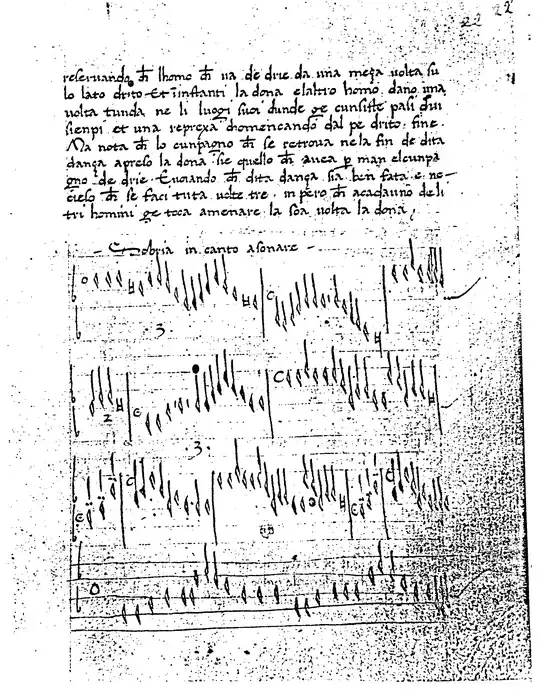 22 22
reseruando ch̄ lhomo ch̄ ua de drie da una meza uolta su
lo lato drito Et īinstanti la dona elaltro homo dano una
uolta tunda ne li luogi suoi dunde ge cunsiste pasi
sienpi et una represa chomencando dal pe drito: fine.
Ma nota ch̄ lo cunpagno ch̄ se retroua nela fin de dita
dança apreso la dona sie quello ch̄ auea p man elcunpa
gno de drie. Euoiando ch̄ dita dança sia ben fata e ne-
cieso ch̄ se faci tuta uolte tre. in pero ch̄ acadauno de li
tri homini ge toca amenare la soa uolta la dona,
in canto asonare
3.
2
3.